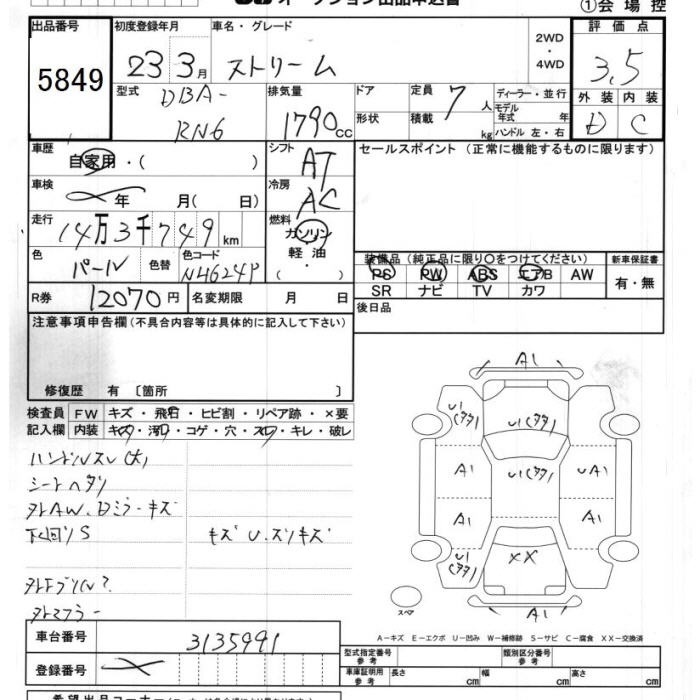 オークション出品申込書
①会場控
出品番号 初度登録年月 車名・グレード 2WD・4WD 評価点
5849 23 3月 ストリーム 3.5
型式 DBA-RN6 排気量 1790cc ドア 形状 定員 7人 積載 kg ディーラー・並行 モデル年式 年 ハンドル 左・右 外装 D 内装 C
車歴 自家用・( ) シフト AT セールスポイント (正常に機能するものに限ります)
車検 年 月( 日) 冷房 AC
走行 14万3千749km 燃料 ガソリン 軽油・( )
色 パール 色替 色コード NH624P
装備品 (純正品に限り○をつけてください) 新車保証書
PS PW ABS エアB AW 有・無
SR ナビ TV カワ
R券 12070円 名変期限 月 日 後日品
注意事項申告欄(不具合内容等は具体的に記入して下さい)
修復歴 有 〔箇所 〕
検査員記入欄 FW キズ・飛石・ヒビ割・リペア跡・×要
内装 キズ・汚れ・コゲ・穴・スレ・キレ・破レ
ハンドルスレ(大)
シートヘタリ
下回りS キズU.スリキズ
A1
U1(タタ) U1(タタ) U1(タタ)
A1 U1(タタ) UA1
A1 A1
U1(タタ) XX U1(タタ)
スペア A1
A-キズ E-エクボ U-凹み W-補修跡 S-サビ C-腐食 XX-交換済
車台番号 3135991
型式指定番号 参考 類別区分番号 参考
登録番号 車庫証明用 参考 長さ cm 幅 cm 高さ cm